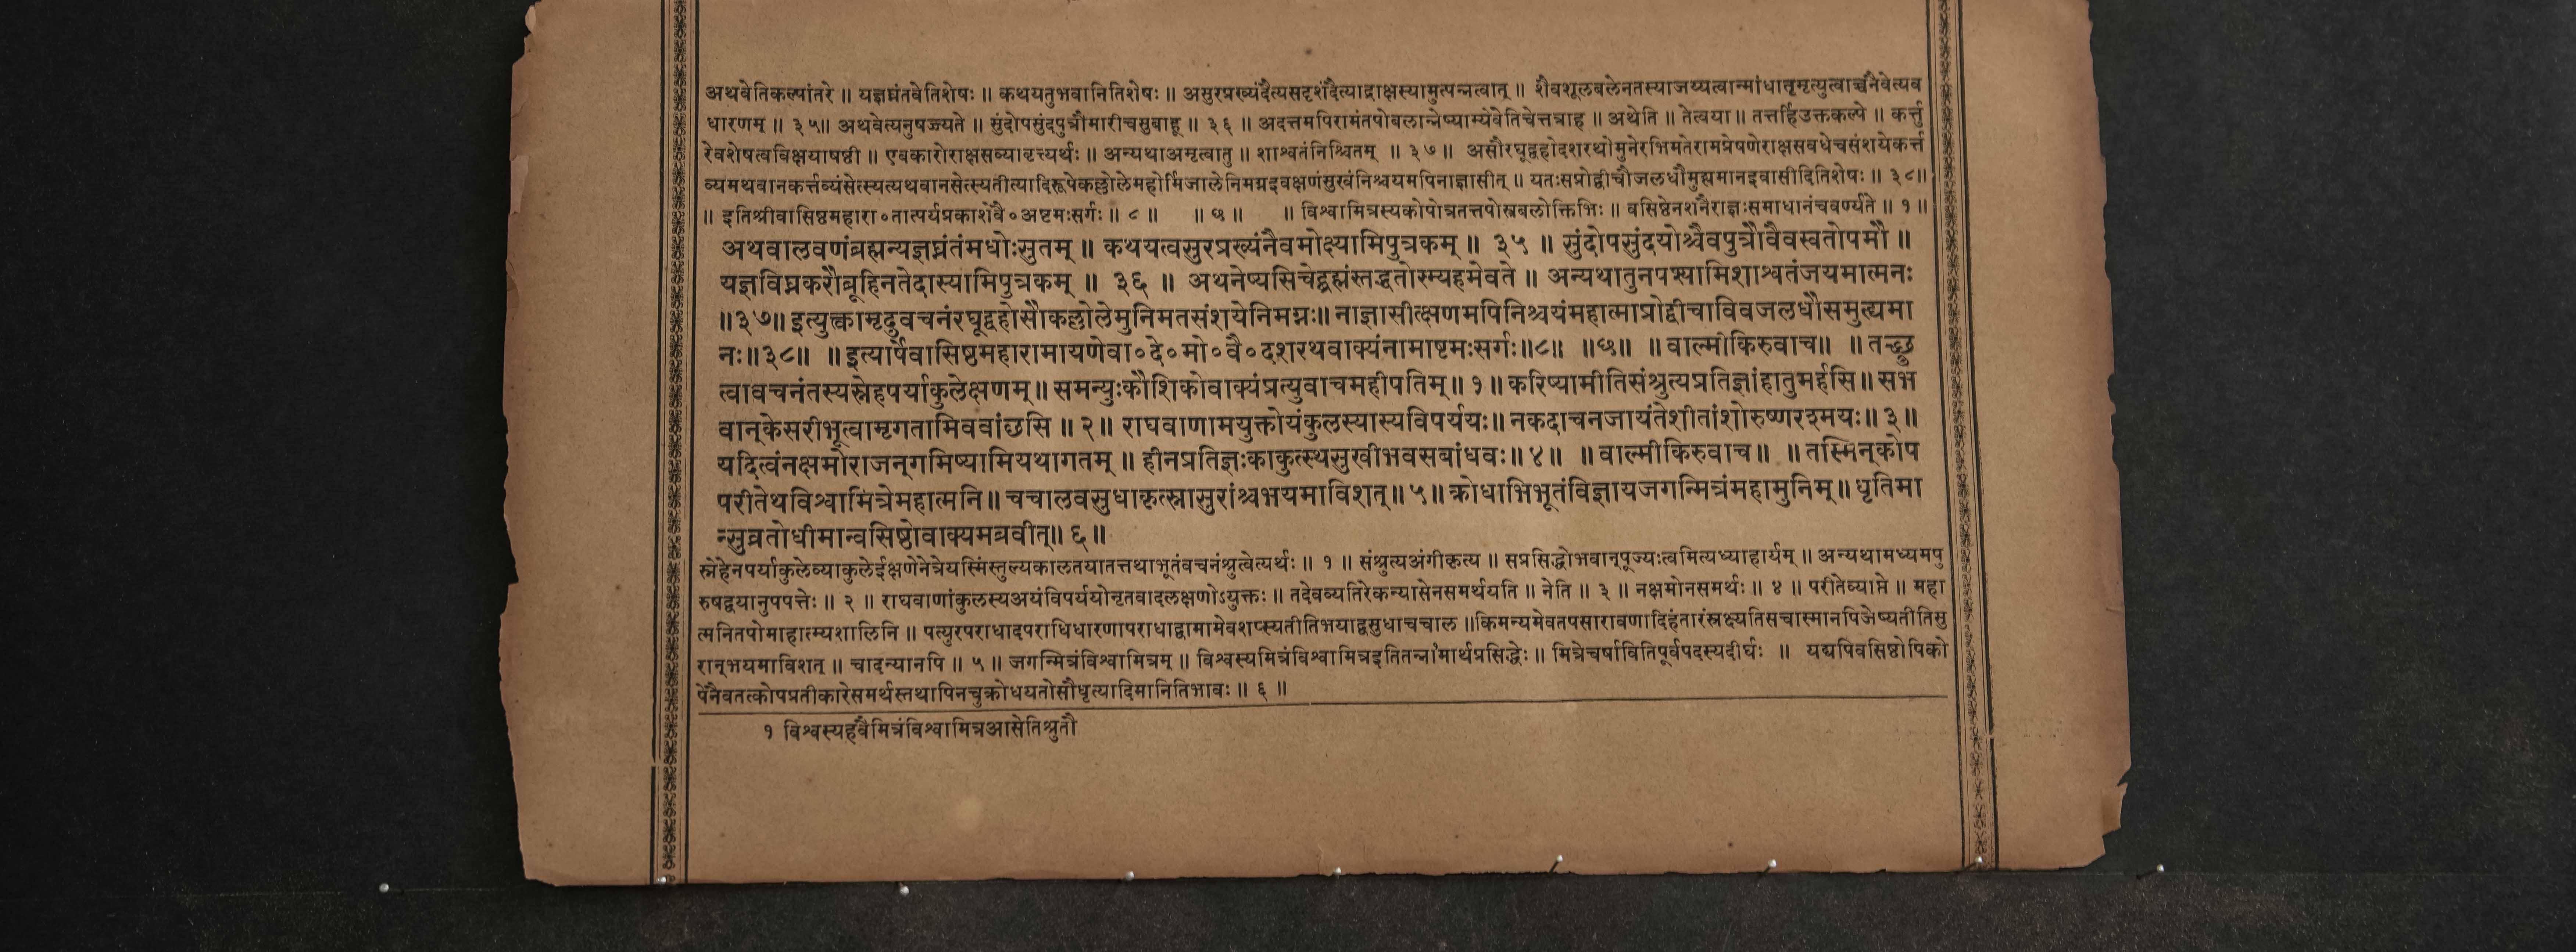 अथवेतिकल्पांतरे ॥ यज्ञघ्नंतवेतिशेषः ॥ कथयतुभवानितिशेषः ॥ असुरप्रख्यंदैत्यसदृशंदैत्याद्राक्षस्यामुत्पन्नत्वात् ॥ शैवशूलबलेनतस्याजय्यत्वान्मांधातृमृत्युत्वाच्चनैवेत्यव
धारणम् ॥ ३५॥ अथवेत्यनुषज्ज्यते ॥ सुंदोपसुंदपुत्रौमारीचसुबाहू ॥ ३६ ॥ अदत्तमपिरामंतपोबलान्नेष्याम्येवेतिचेत्तत्राह ॥ अथेति ॥ तेत्वया ॥ तत्तर्हिउक्तकल्पे ॥ कर्त्तु
रेवशेषत्वविक्षयाषष्ठी ॥ एवकारोराक्षसव्यावृत्त्यर्थः ॥ अन्यथाअमृत्वातु ॥ शाश्वतंनिश्चितम् ॥ ३७ ॥ असौरघूद्वहोदशरथोमुनेरभिमतेरामप्रेषणेराक्षसवधेचसंशयेकर्त्त
व्यमथवानकर्त्तव्यंसेत्स्यत्यथवानसेत्स्यतीत्यादिरूपेकल्लोलेमहोर्मिजालेनिमग्नइवक्षणंसुखंनिश्चयमपिनाज्ञासीत् ॥ यतःसप्रोद्वीचौजलधौमुह्यमानइवासीदितिशेषः ॥ ३८॥
॥ इतिश्रीवासिष्ठमहारा॰तात्पर्यप्रकाशेवै॰अष्टमःसर्गः ॥ ८ ॥ ॥ छ ॥ ॥ विश्वामित्रस्यकोपोत्रतत्तपोस्त्रबलोक्तिभिः ॥ वसिष्ठेनशनैराज्ञःसमाधानंचवर्ण्यते ॥ १ ॥
अथवालवणंब्रह्मन्यज्ञघ्नंतंमधोःसुतम् ॥ कथयत्वसुरप्रख्यंनैवमोक्ष्यामिपुत्रकम् ॥ ३५ ॥ सुंदोपसुंदयोश्चैवपुत्रौवैवस्वतोपमौ ॥
यज्ञविघ्नकरौब्रूहिनतेदास्यामिपुत्रकम् ॥ ३६ ॥ अथनेष्यसिचेद्ब्रह्मंस्तद्धतोस्म्यहमेवते ॥ अन्यथातुनपश्यामिशाश्वतंजयमात्मनः
॥३७॥ इत्युक्त्वामृदुवचनंरघूद्वहोसौकल्लोलेमुनिमतसंशयेनिमग्नः॥ नाज्ञासीत्क्षणमपिनिश्चयंमहात्माप्रोद्वीचाविवजलधौसमुह्यमा
नः॥३८॥ ॥इत्यार्षेवासिष्ठमहारामायणेवा॰दे॰मो॰वै॰दशरथवाक्यंनामाष्टमःसर्गः॥८॥ ॥छ॥ ॥वाल्मीकिरुवाच॥ ॥तच्छ्रु
त्वावचनंतस्यस्नेहपर्याकुलेक्षणम्॥ समन्युःकौशिकोवाक्यंप्रत्युवाचमहीपतिम्॥१॥करिष्यामीतिसंश्रुत्यप्रतिज्ञांहातुमर्हसि॥सभ
वान्केसरीभूत्वामृगतामिववांछसि ॥२॥ राघवाणामयुक्तोयंकुलस्यास्यविपर्ययः॥नकदाचनजायंतेशीतांशोरुष्णरश्मयः॥३॥
यदित्वंनक्षमोराजन्गमिष्यामियथागतम् ॥ हीनप्रतिज्ञःकाकुत्स्थसुखीभवसबांधवः॥४॥ ॥वाल्मीकिरुवाच॥ ॥तस्मिन्कोप
परीतेथविश्वामित्रेमहात्मनि॥चचालवसुधाकृत्स्नासुरांश्चभयमाविशत्॥५॥क्रोधाभिभूतंविज्ञायजगन्मित्रंमहामुनिम्॥धृतिमा
न्सुव्रतोधीमान्वसिष्ठोवाक्यमब्रवीत्॥६॥
स्नेहेनपर्याकुलेव्याकुलेईक्षणेनेत्रेयस्मिंस्तुल्यकालतयातत्तथाभूतंवचनंश्रुत्वेत्यर्थः ॥ १ ॥ संश्रुत्यअंगीकृत्य ॥ सप्रसिद्धोभवान्पूज्यःत्वमित्यध्याहार्यम् ॥ अन्यथामध्यमपु
रुषद्वयानुपपत्तेः ॥ २ ॥ राघवाणांकुलस्यअयंविपर्ययोनृतवादलक्षणोऽयुक्तः ॥ तदेवव्यतिरेकन्यासेनसमर्थयति ॥ नेति ॥ ३ ॥ नक्षमोनसमर्थः ॥ ४ ॥ परीतेव्याप्ते ॥ महा
त्मनितपोमाहात्म्यशालिनि ॥ पत्युरपराधादपराधिधारणापराधाद्वामामेवशप्स्यतीतिभयाद्वसुधाचचाल ॥किमन्यमेवतपसारावणादिहंतारंस्रक्ष्यतिसचास्मानपिजेष्यतीतिसु
रान्भयमाविशत् ॥ चादन्यानपि ॥ ५ ॥ जगन्मित्रंविश्वामित्रम् ॥ विश्वस्यमित्रंविश्वामित्रइतितन्नामार्थप्रसिद्धेः ॥ मित्रेचर्षावितिपूर्वपदस्यदीर्घः ॥ यद्यपिवसिष्ठोपिको
पेनैवतत्कोपप्रतीकारेसमर्थस्तथापिनचुक्रोधयतोसौधृत्यादिमानितिभावः ॥ ६ ॥
१ विश्वस्यहवैमित्रंविश्वामित्रआसेतिश्रुतौ